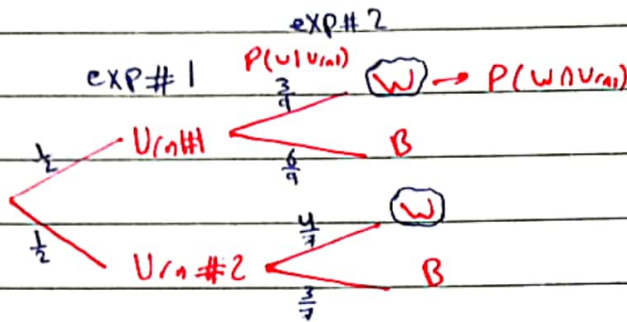 exp#2
exp#1
P(W|Urn1)
3/9
W → P(W∩Urn1)
1/2
Urn#1
6/9
B
4/7
W
1/2
Urn#2
3/7
B